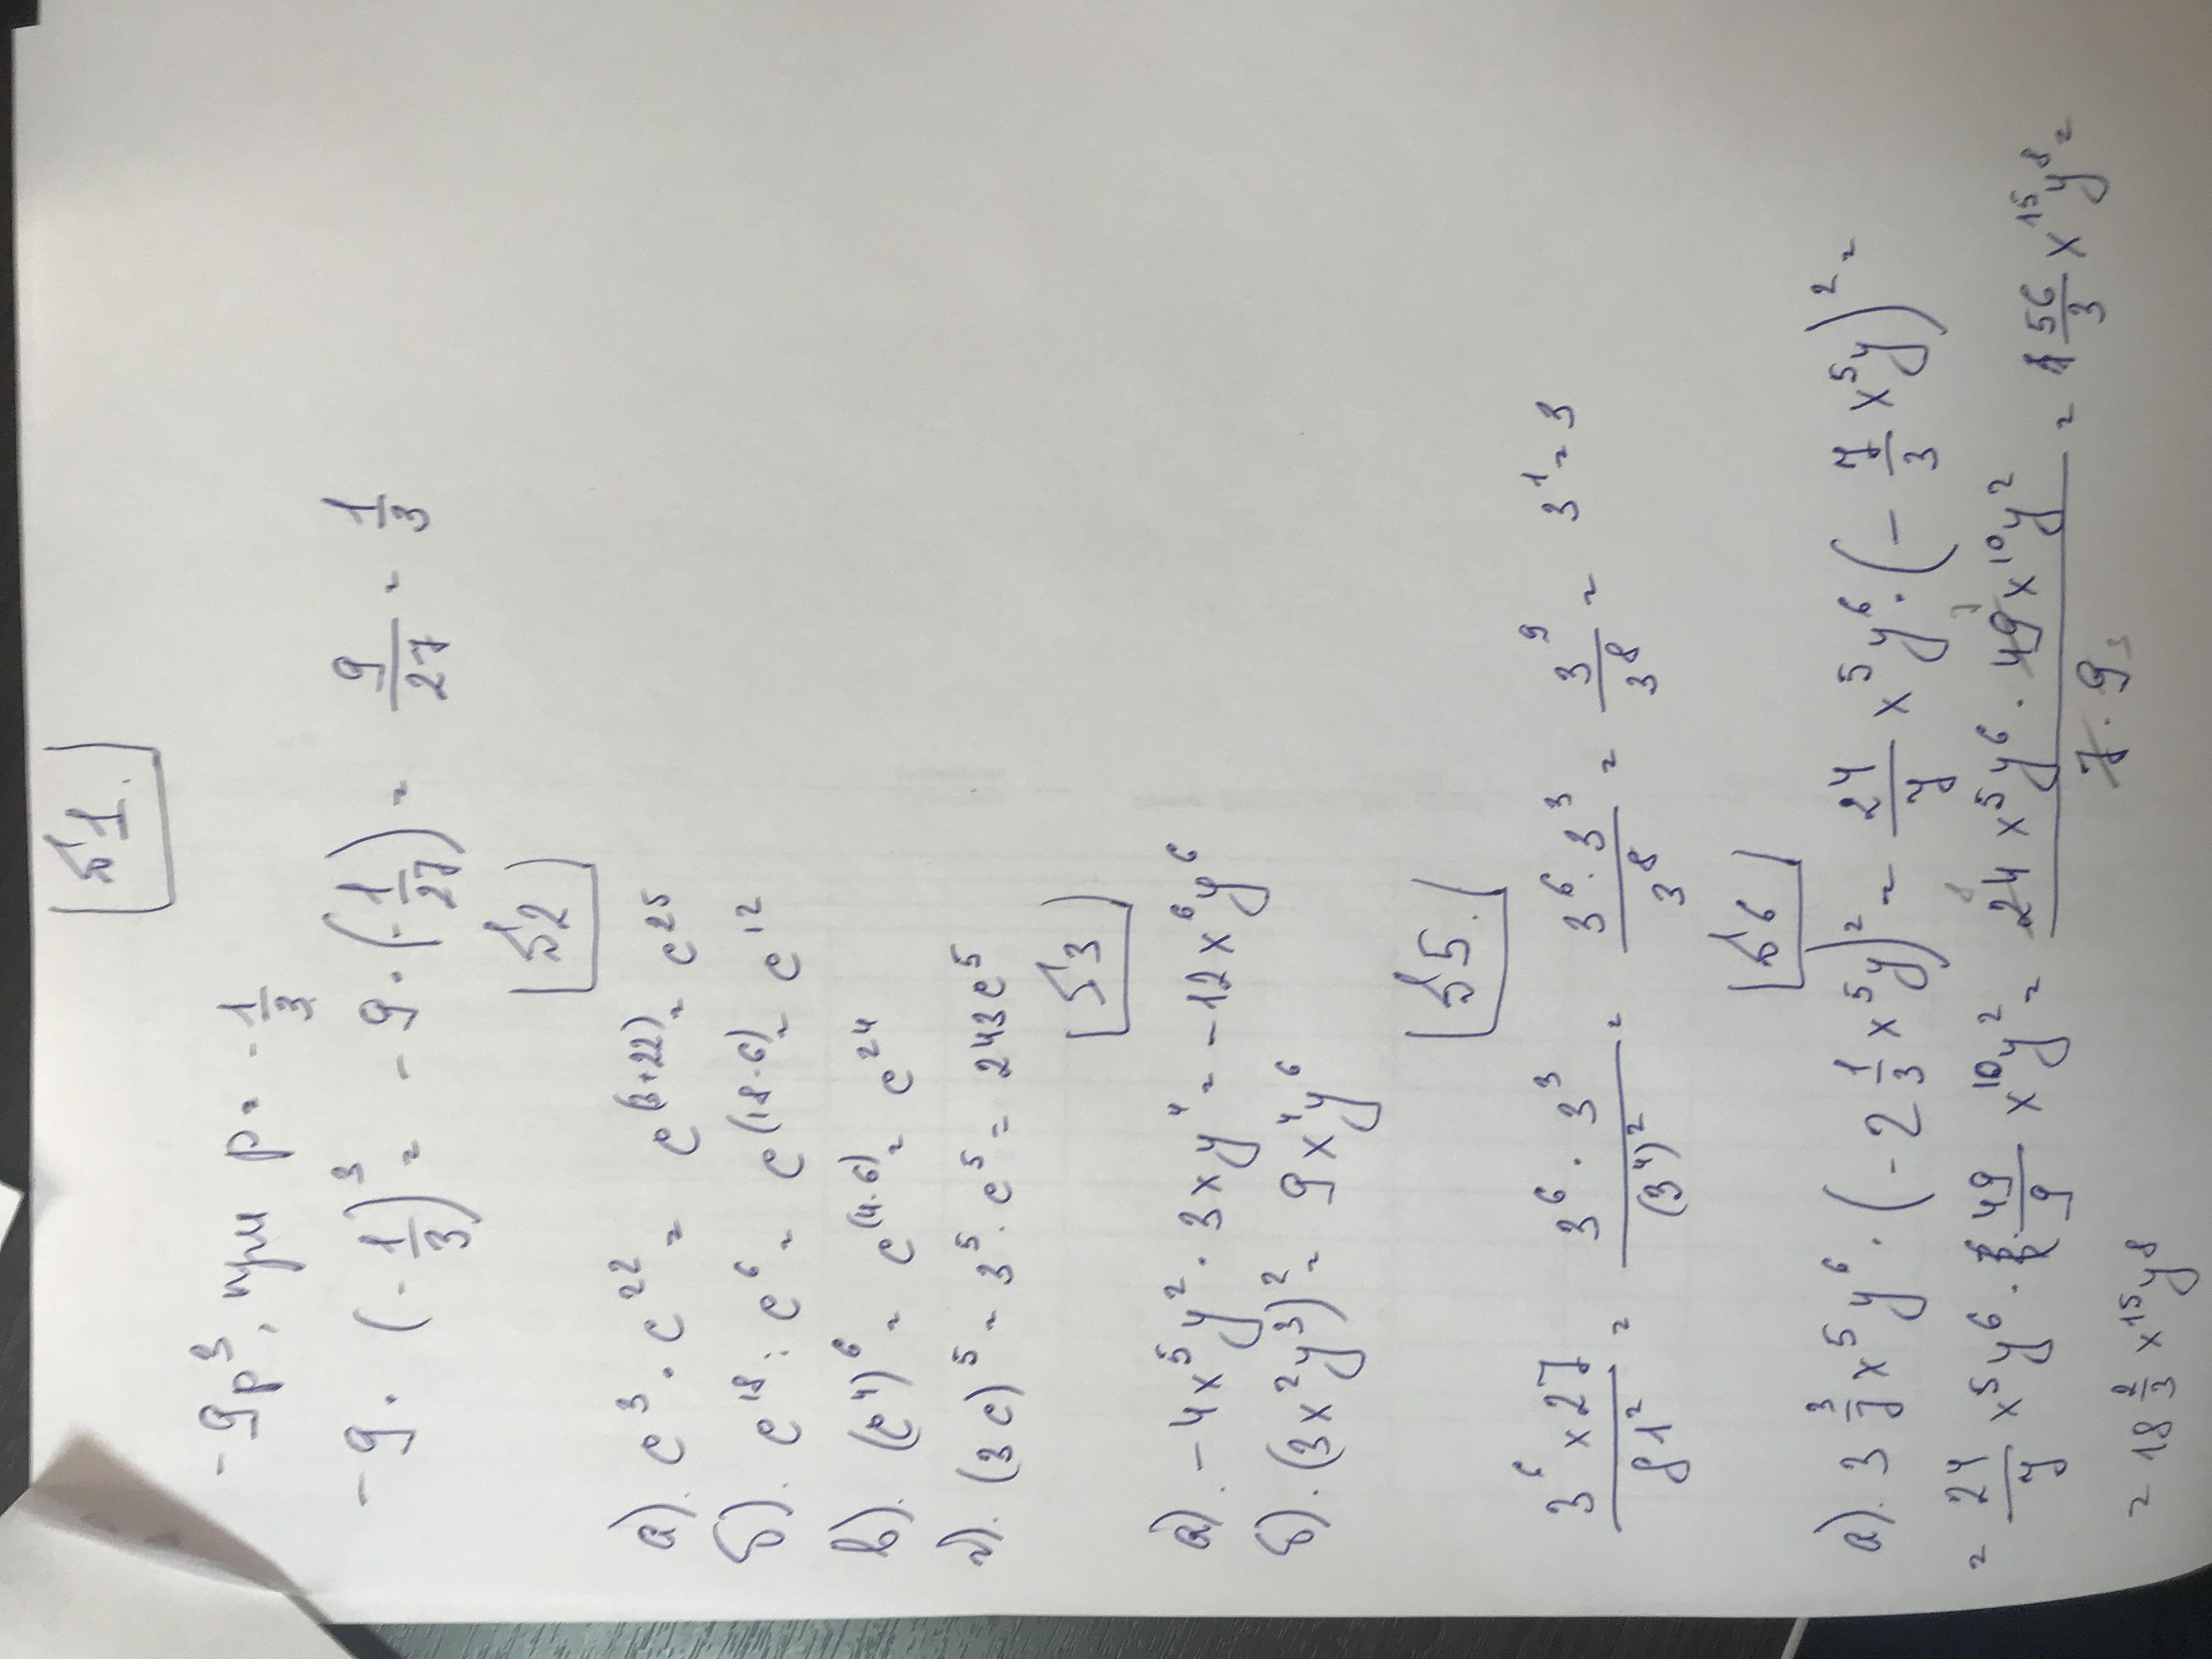 №1.
-9p³, при p = -1/3
-9 · (-1/3)³ = -9 · (-1/27) = 9/27 = 1/3
№2
а). c³ · c²² = c^(3+22) = c²⁵
б). c¹⁸ : c⁶ = c^(18-6) = c¹²
в). (c⁴)⁶ = c^(4·6) = c²⁴
г). (3c)⁵ = 3⁵ · c⁵ = 243c⁵
№3
а). -4x⁵y² · 3xy⁴ = -12x⁶y⁶
б). (3x²y³)² = 9x⁴y⁶
№5.
3⁶ x 27 / 81² = 3⁶ · 3³ / (3⁴)² = 3⁶ · 3³ / 3⁸ = 3⁹ / 3⁸ = 3¹ = 3
№6
а). 3 3/7 x⁵y⁶ · (-2 1/3 x⁵y)² = 24/7 x⁵y⁶ · (- 7/3 x⁵y)² =
= 24/7 x⁵y⁶ · 49/9 x¹⁰y² = 24x⁵y⁶ · 49x¹⁰y² / 7 · 9 = 56/3 x¹⁵y⁸ =
= 18 2/3 x¹⁵y⁸